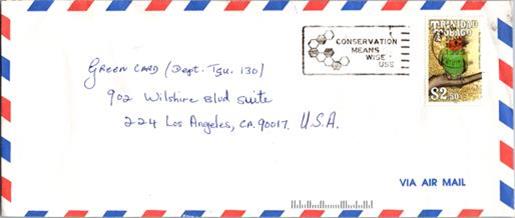 CONSERVATION
MEANS
WISE
USE
TRINIDAD
TOBAGO
$2.50
GREEN CARD (Dept. Tsu. 130)
902 Wilshire Blvd Suite
224 Los Angeles, CA. 90017. U.S.A.
VIA AIR MAIL